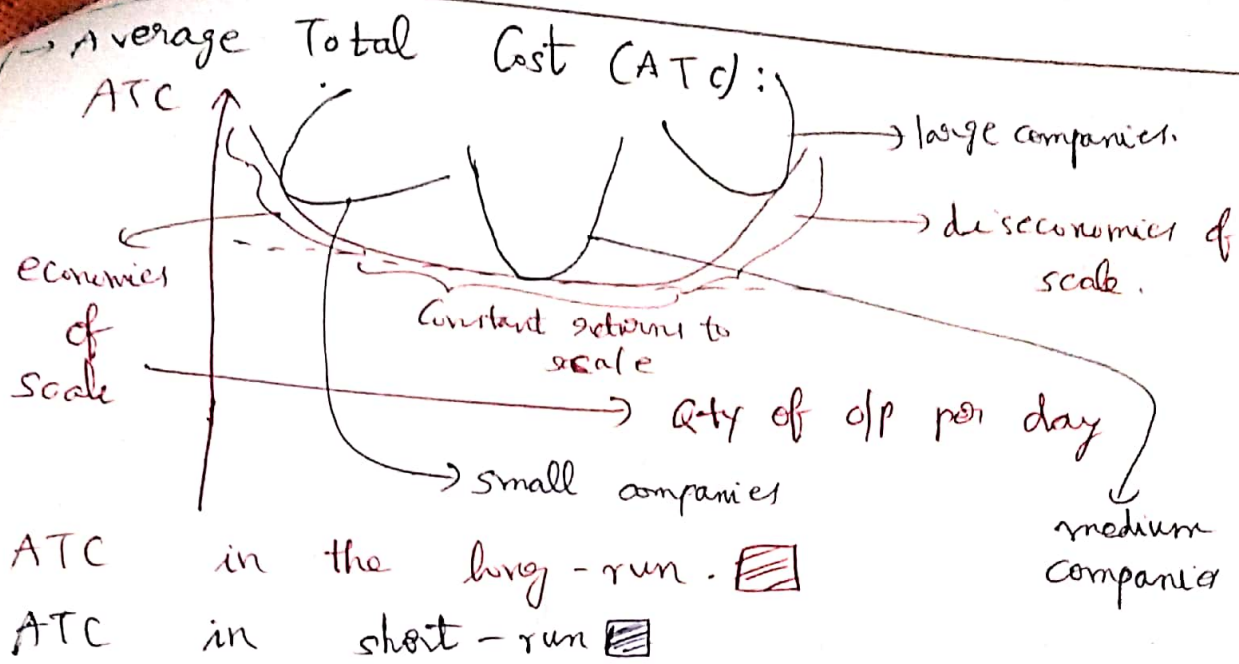 → Average Total Cost (ATC) :
ATC
large companies.
diseconomies of
scale.
economies
of
scale
Constant returns to
scale
Qty of o/p per day
small companies
medium
companies
ATC in the long-run.
ATC in short-run